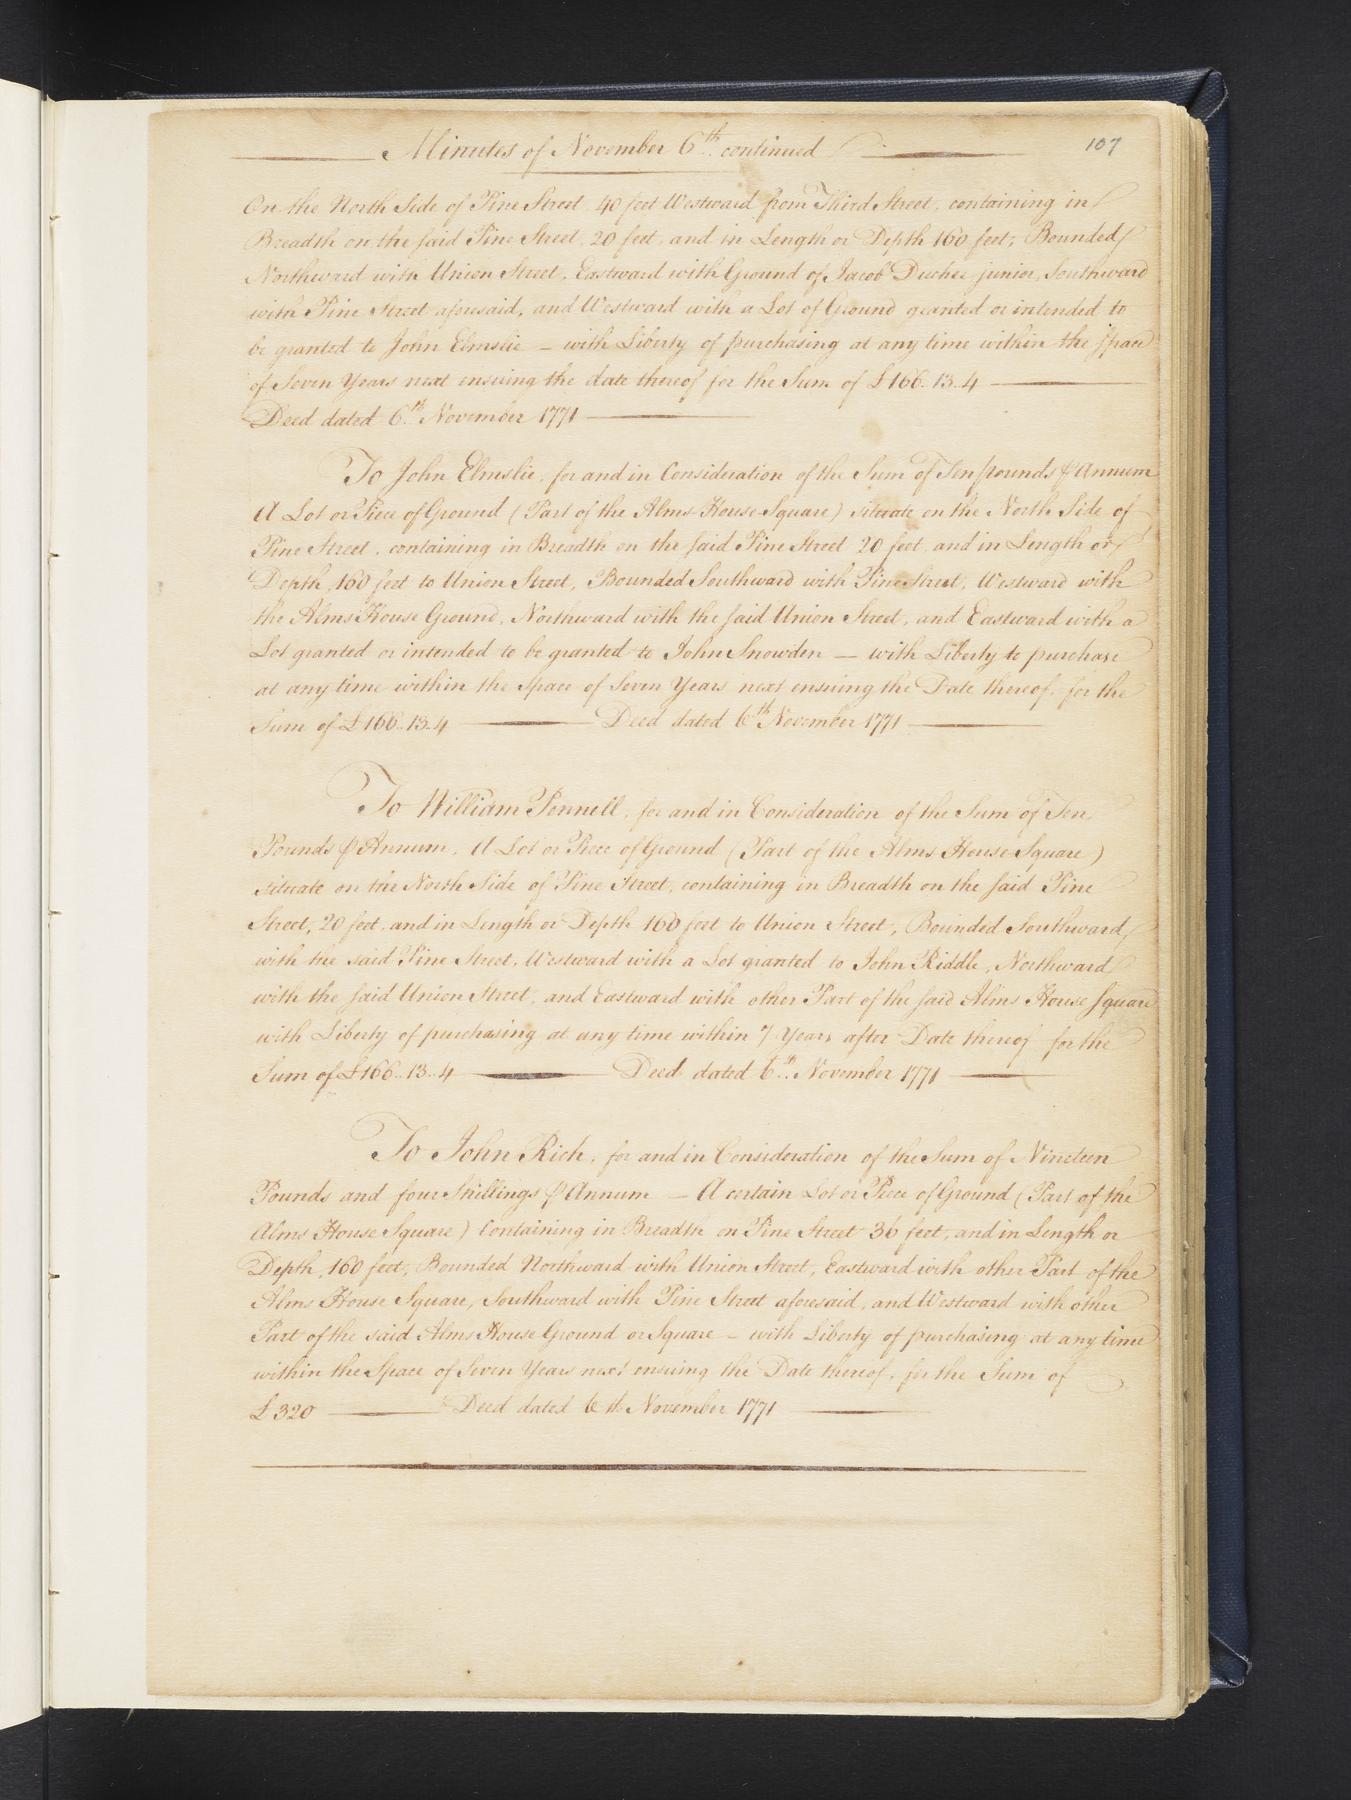 Minutes of November 6th continued
107
On the North Side of Pine Street 40 feet Westward from Third Street, containing in
Breadth on the said Pine Street, 20 feet, and in Length or Depth 160 feet; Bounded
Northward with Union Street, Eastward with Ground of Jacob Duchee junior, Southward
with Pine Street aforesaid, and Westward with a Lot of Ground granted or intended to
be granted to John Elmslie — with Liberty of purchasing at any time within the space
of Seven Years next ensuing the date thereof for the Sum of £166..13..4
Deed dated 6th November 1771
To John Elmslie, for and in Consideration of the Sum of Ten pounds ⅌ Annum
A Lot or Piece of Ground (Part of the Alms House Square) situate on the North Side of
Pine Street, containing in Breadth on the said Pine Street 20 feet, and in Length or
Depth, 160 feet to Union Street, Bounded Southward with Pine Street, Westward with
the Alms House Ground, Northward with the said Union Street, and Eastward with a
Lot granted or intended to be granted to John Snowden — with Liberty to purchase
at any time within the Space of Seven Years next ensuing the Date thereof, for the
Sum of £166..13..4 — Deed dated 6th November 1771
To William Pennell, for and in Consideration of the Sum of Ten
Pounds ⅌ Annum, A Lot or Piece of Ground (Part of the Alms House Square)
situate on the North Side of Pine Street, containing in Breadth on the said Pine
Street, 20 feet, and in Length or Depth 160 feet to Union Street, Bounded Southward
with the said Pine Street, Westward with a Lot granted to John Riddle, Northward
with the said Union Street, and Eastward with other Part of the said Alms House Square
with Liberty of purchasing at any time within 7 Years after Date thereof for the
Sum of £166..13..4 — Deed dated 6th November 1771
To John Rich, for and in Consideration of the Sum of Nineteen
Pounds and four Shillings ⅌ Annum — A certain Lot or Piece of Ground (Part of the
Alms House Square) Containing in Breadth on Pine Street 36 feet, and in Length or
Depth, 160 feet, Bounded Northward with Union Street, Eastward with other Part of the
Alms House Square, Southward with Pine Street aforesaid, and Westward with other
Part of the said Alms House Ground or Square — with Liberty of purchasing at any time
within the Space of Seven Years next ensuing the Date thereof, for the Sum of
£320 — Deed dated 6th November 1771